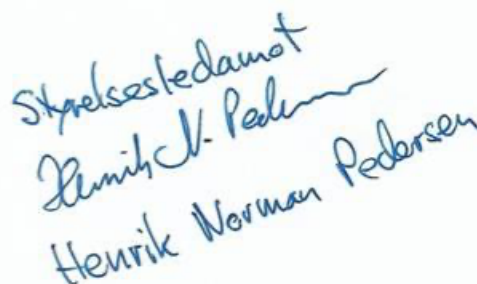 Styrelsesledamot
Henrik N. Pedersen
Henrik Norman Pedersen